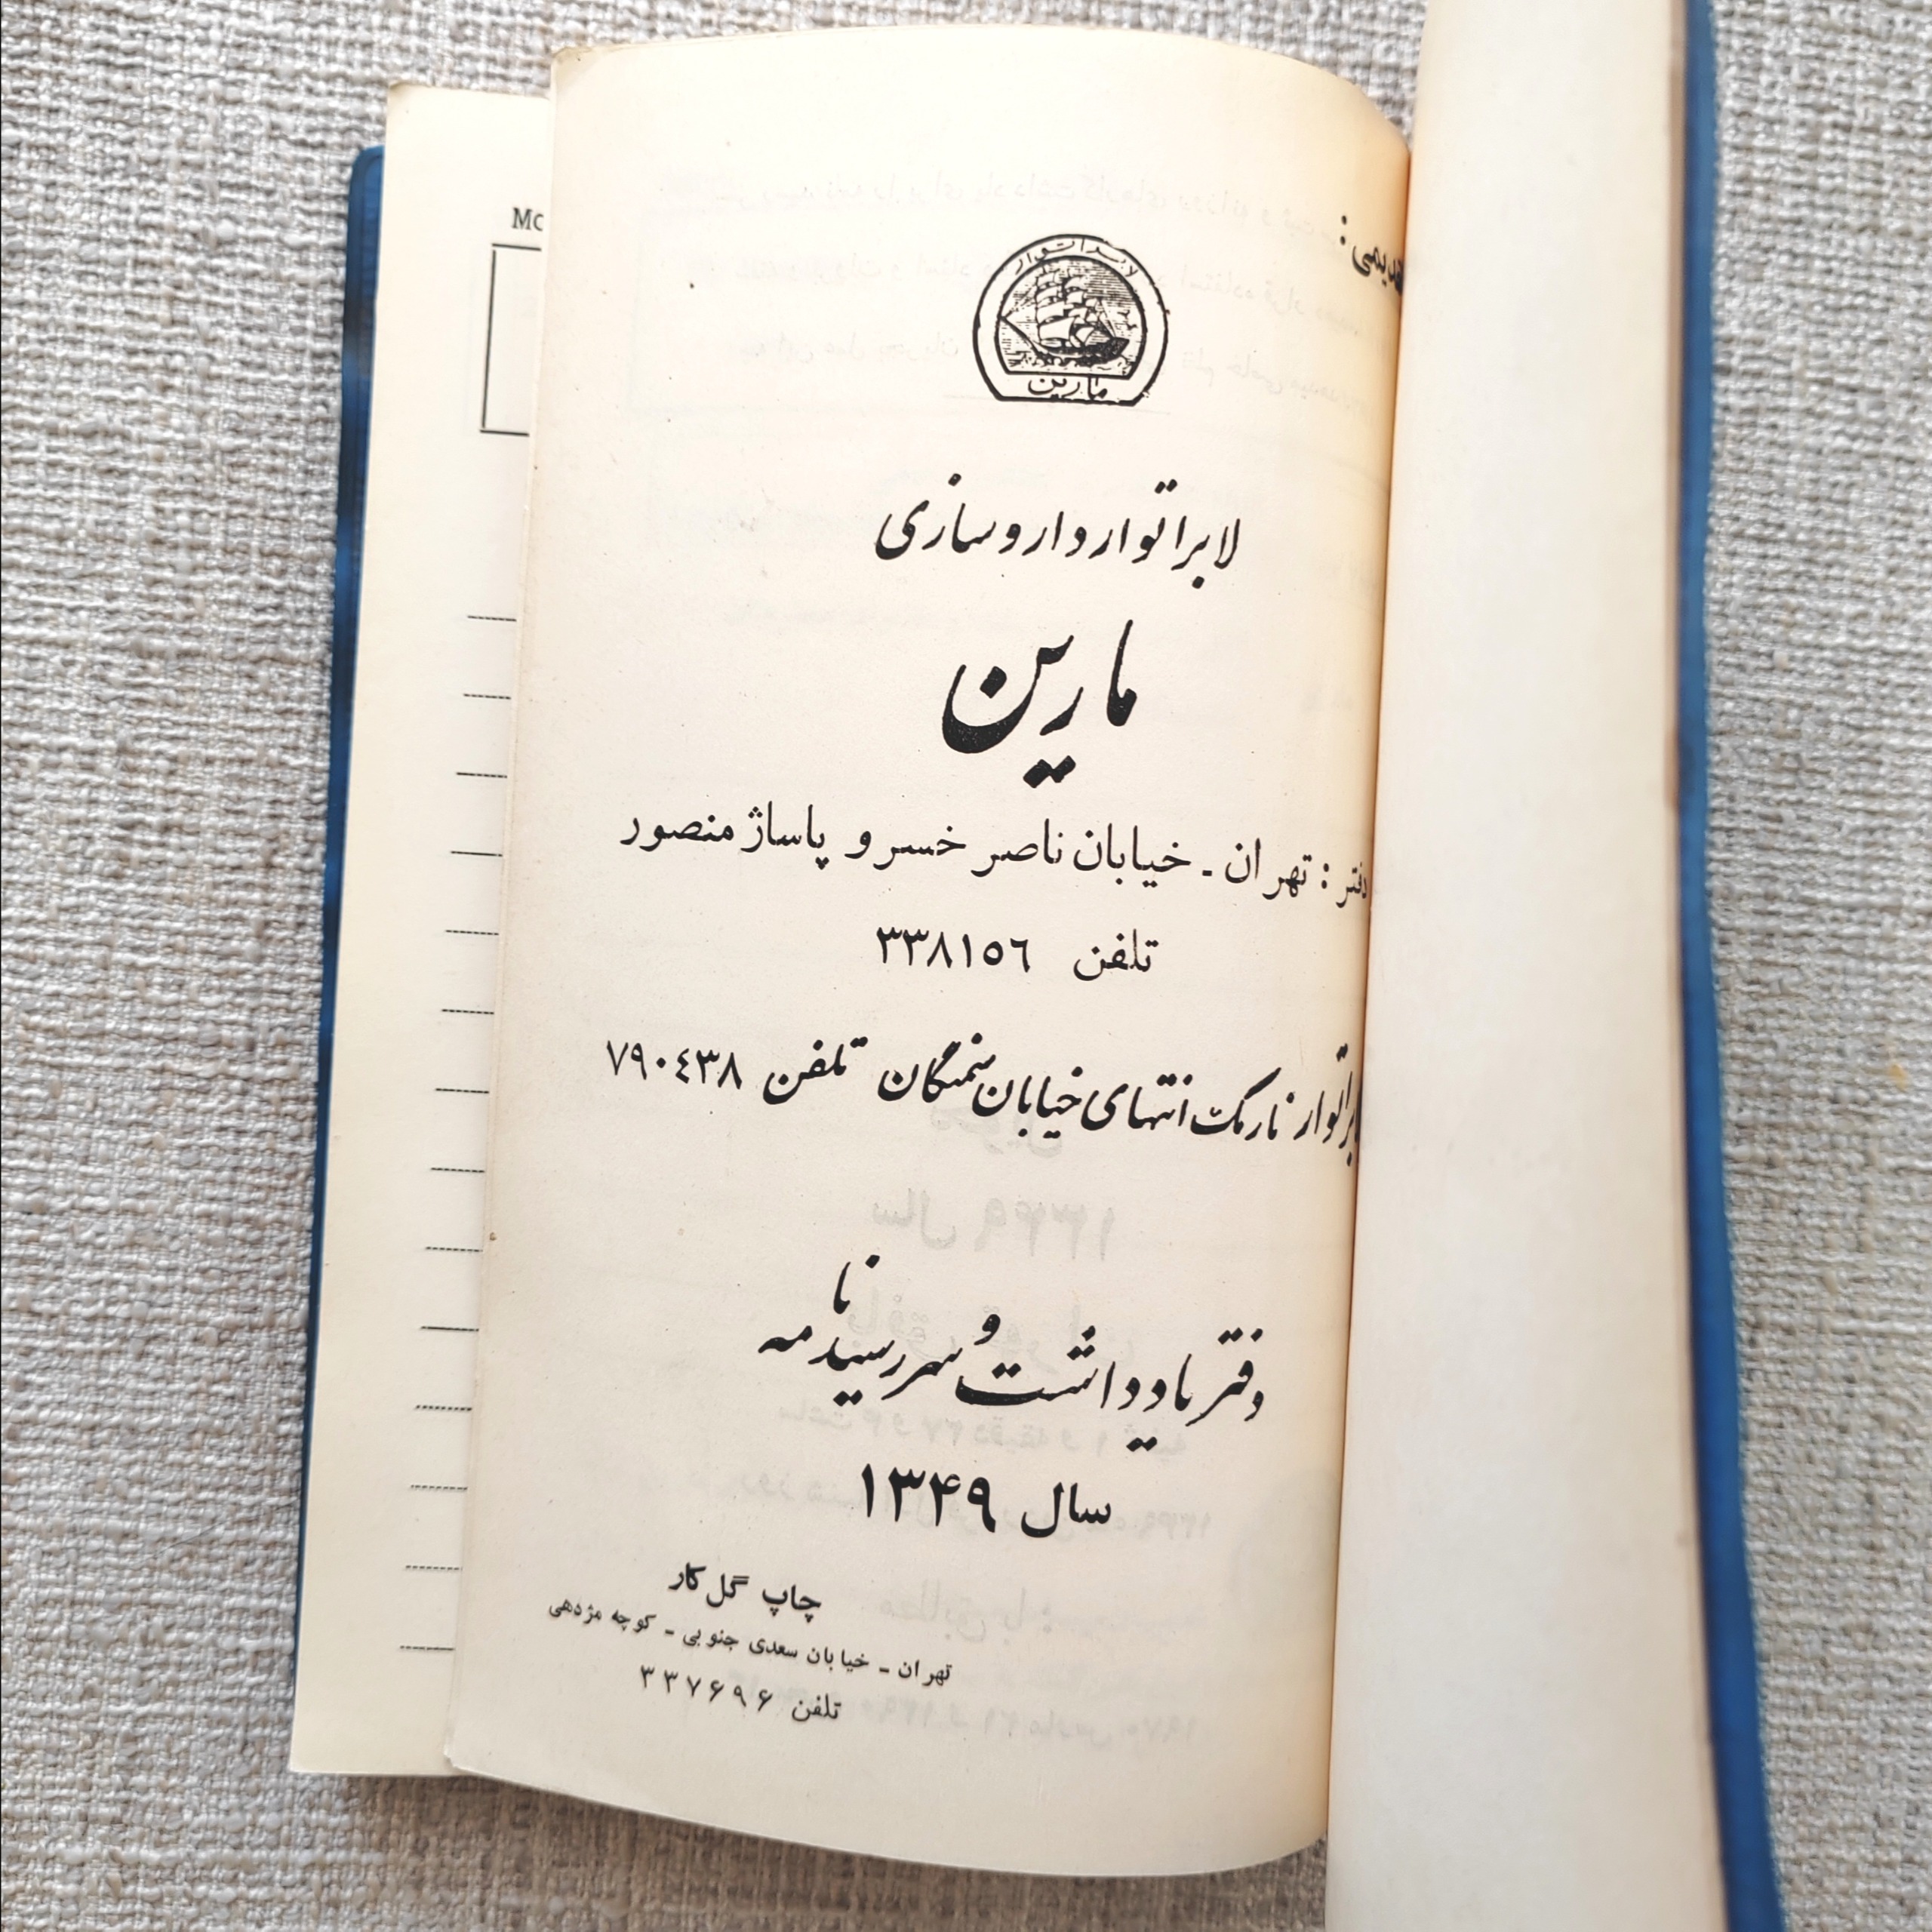 تقدیمی :
لابراتوار
مارین
لابراتوار داروسازی
مارین
دفتر : تهران - خیابان ناصر خسرو پاساژ منصور
تلفن ۳۳۸۱٥٦
لابراتوار نارمک انتهای خیابان سمنگان تلفن ۷۹۰٤۳۸
دفتر یادداشت و سررسید نامه
سال ۱۳۴۹
چاپ گل کار
تهران - خیابان سعدی جنوبی - کوچه مژدهی
تلفن ۳۳۷۶۹۶